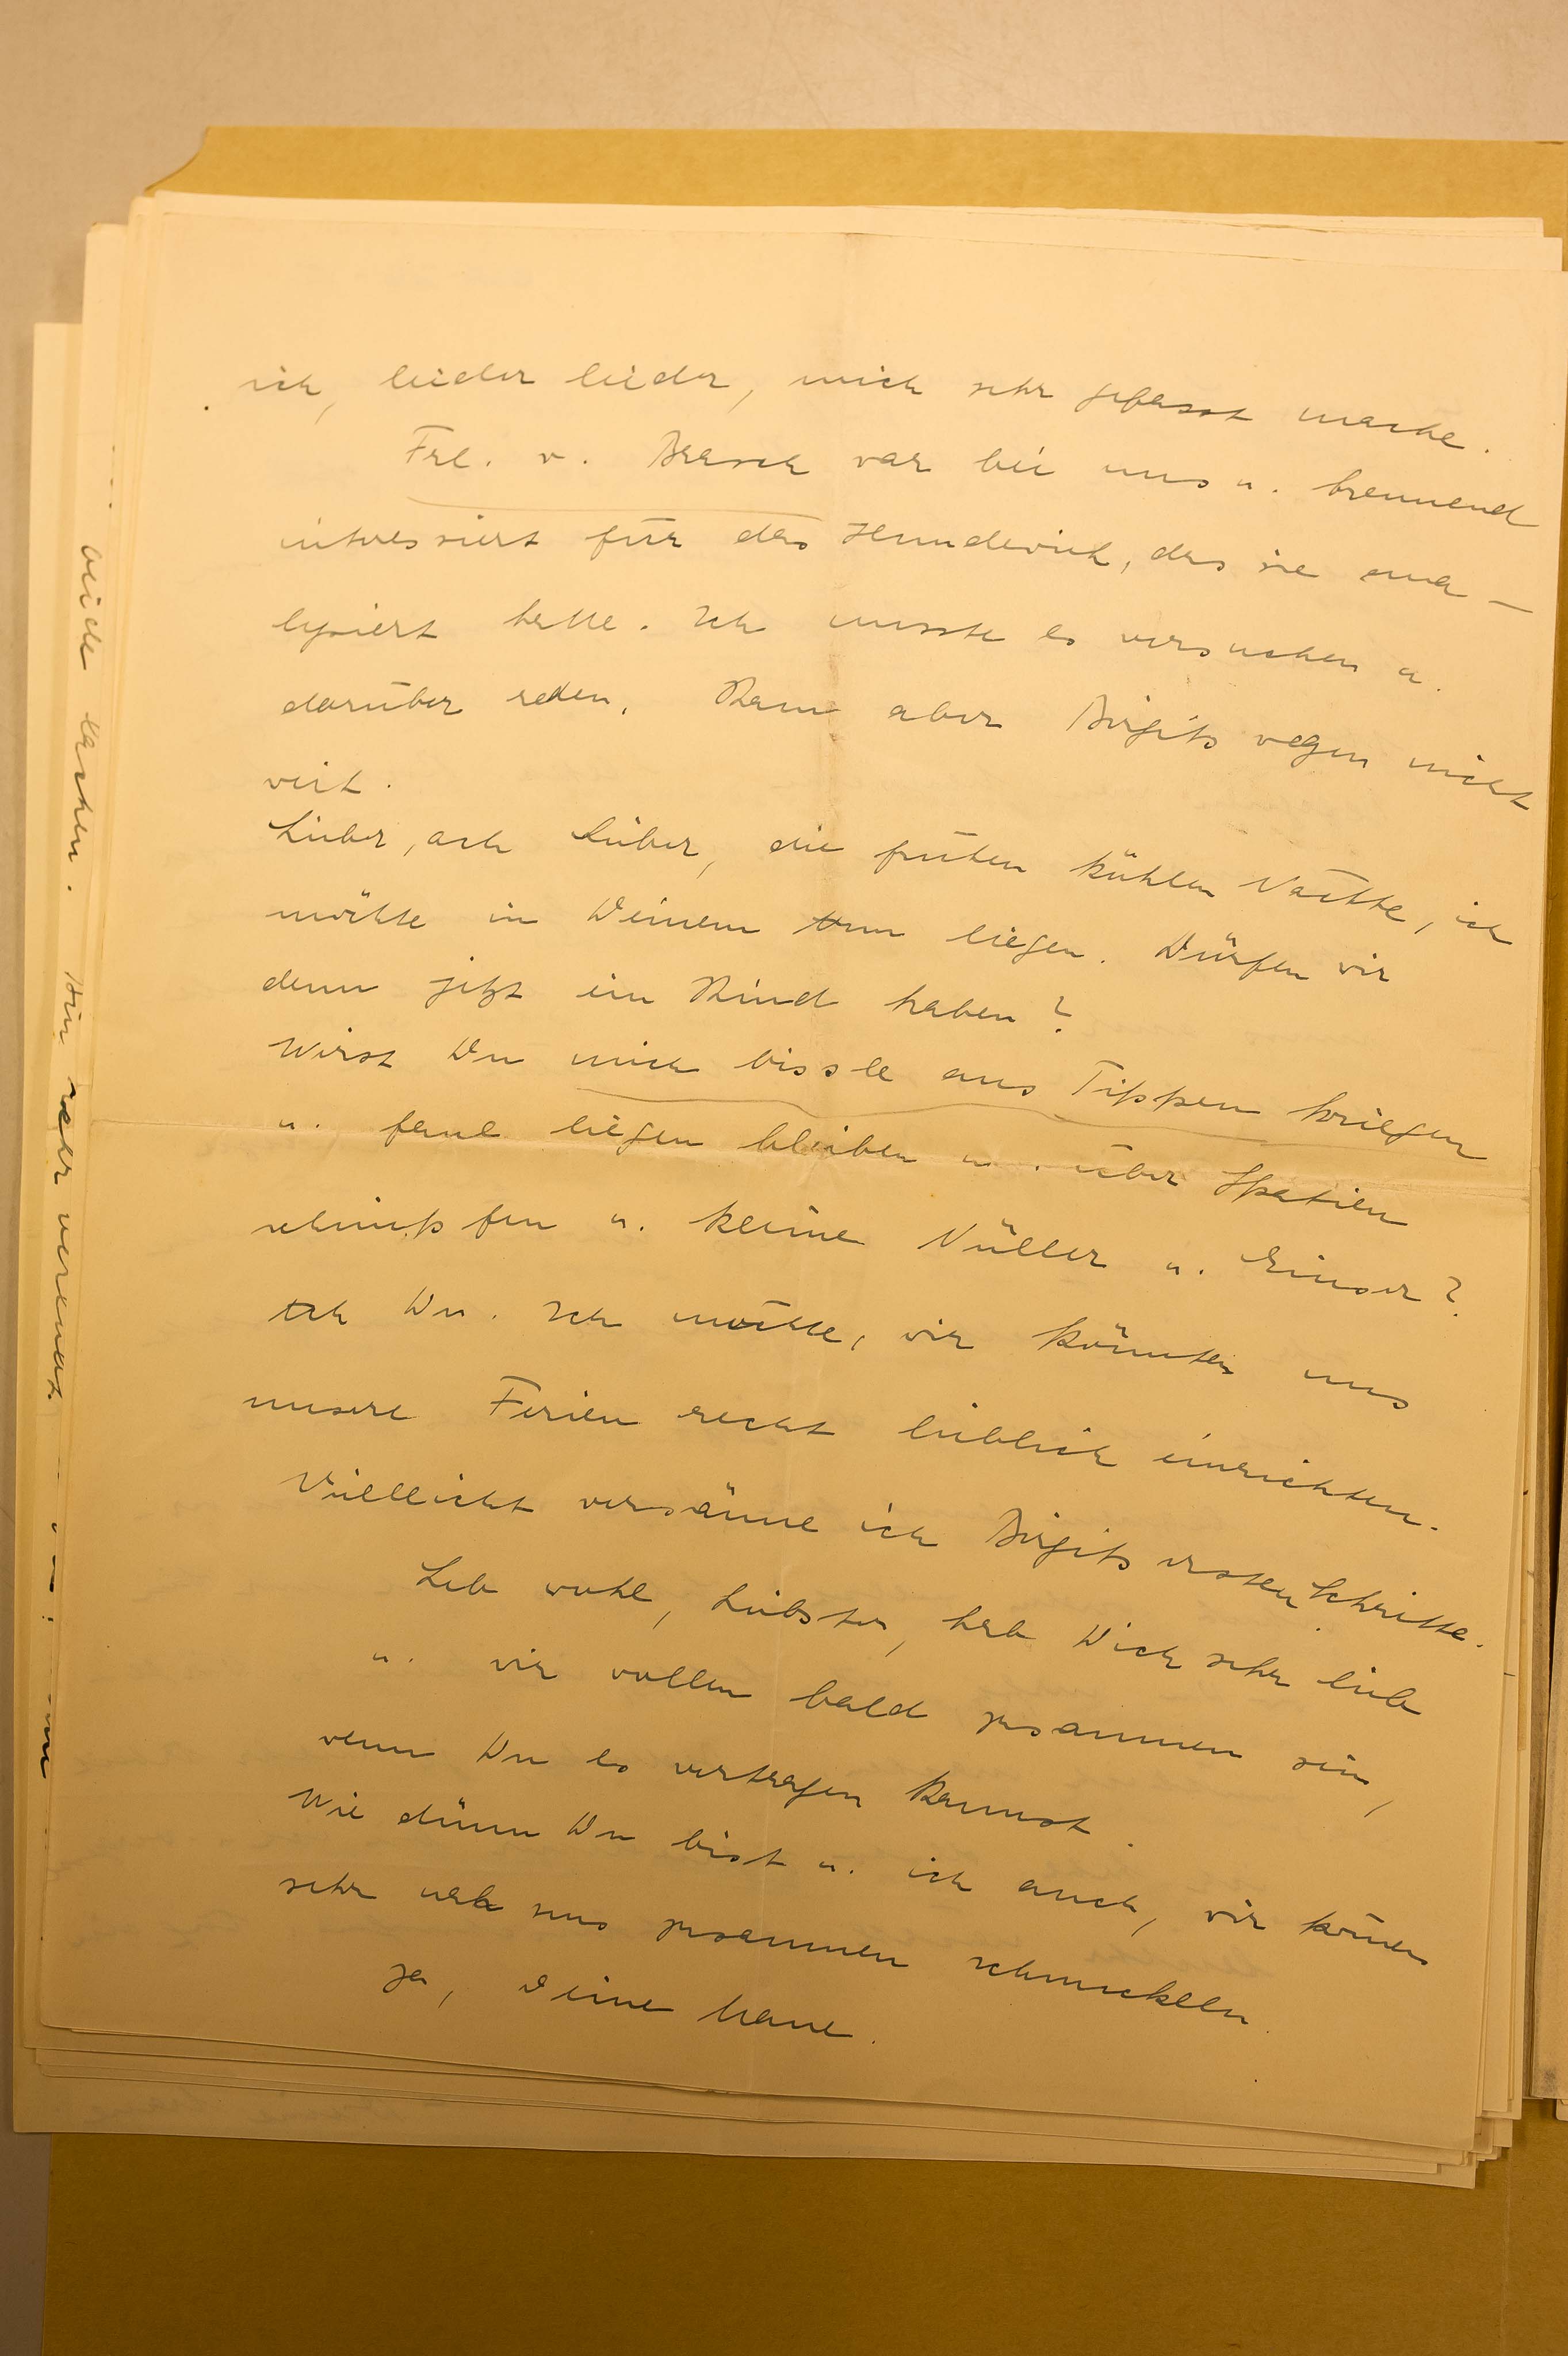 ich, leider leider, mich sehr gefasst mache.
Frl. v. Brasch war bei uns u. brennend
interessiert für das Hundevieh, das sie ana-
lysiert hatte. Ich musste es versuchen u.
darüber reden. Kam aber Birgits wegen nicht
weit.
Lieber, ach Lieber, die guten kühlen Nächte, ich
möchte in Deinem Arm liegen. Dürfen wir
denn jetzt ein Kind haben?
Wirst Du mich bissle ans Tippen kriegen
u. faul liegen bleiben u. über Spatien
schimpfen u. keine Nüller u. Einser?
Ach Du. Ich möchte, wir könnten uns
unsere Ferien recht lieblich einrichten.
Vielleicht versäume ich Birgits ersten Schritte.
Leb wohl, Liebster, hab Dich sehr lieb
u. wir wollen bald zusammen sein,
wenn Du es vertragen kannst.
Wie dünn Du bist u. ich auch, wir können
sehr nah uns zusammen schmuckeln.
Ja, Deine Mane.
beide lachen. Hin sehr vereinat